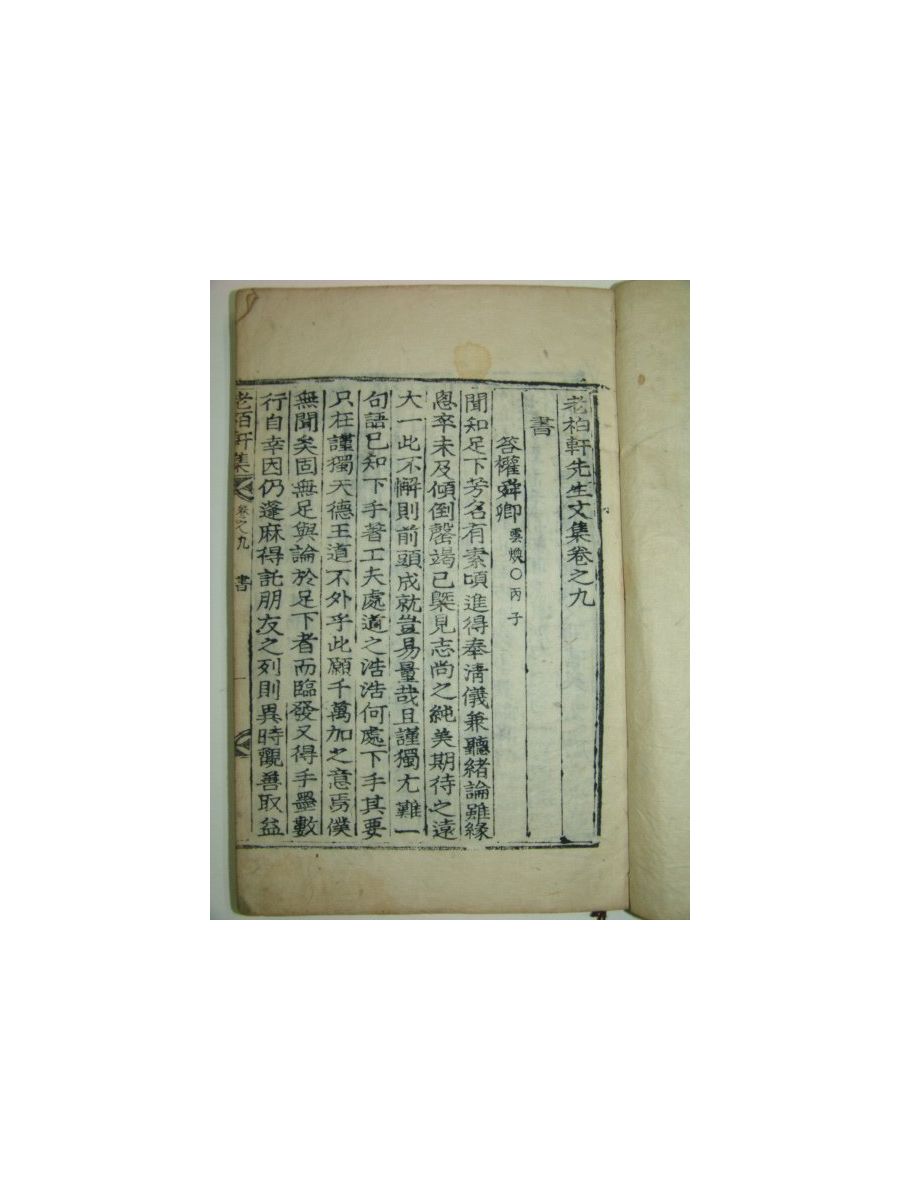 老柏軒先生文集卷之九
書
答權舜卿 雲煥○丙子
聞知足下芳名有素頃進得奉淸儀兼聽緖論雖緣
悤卒未及傾倒罄竭已槩見志尚之純美期待之遠
大一此不懈則前頭成就豈易量哉且謹獨尤難一
句語已知下手著工夫處道之浩浩何處下手其要
只在謹獨天德王道不外乎此願千萬加之意焉僕
無聞矣固無足與論於足下者而臨發又得手墨數
行自幸因仍蓬麻得託朋友之列則異時觀善取益
老栢軒集 卷之九 書 一